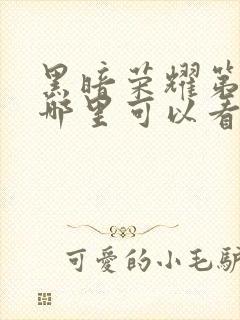 黑暗荣耀第
哪里可以看
可愛的小毛驴